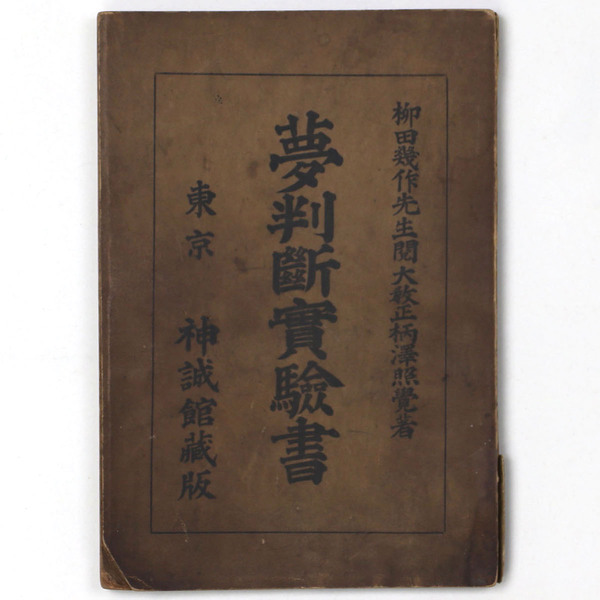 柳田幾作先生閲大教正柄澤照覺著
夢判斷實驗書
東京 神誠館藏版